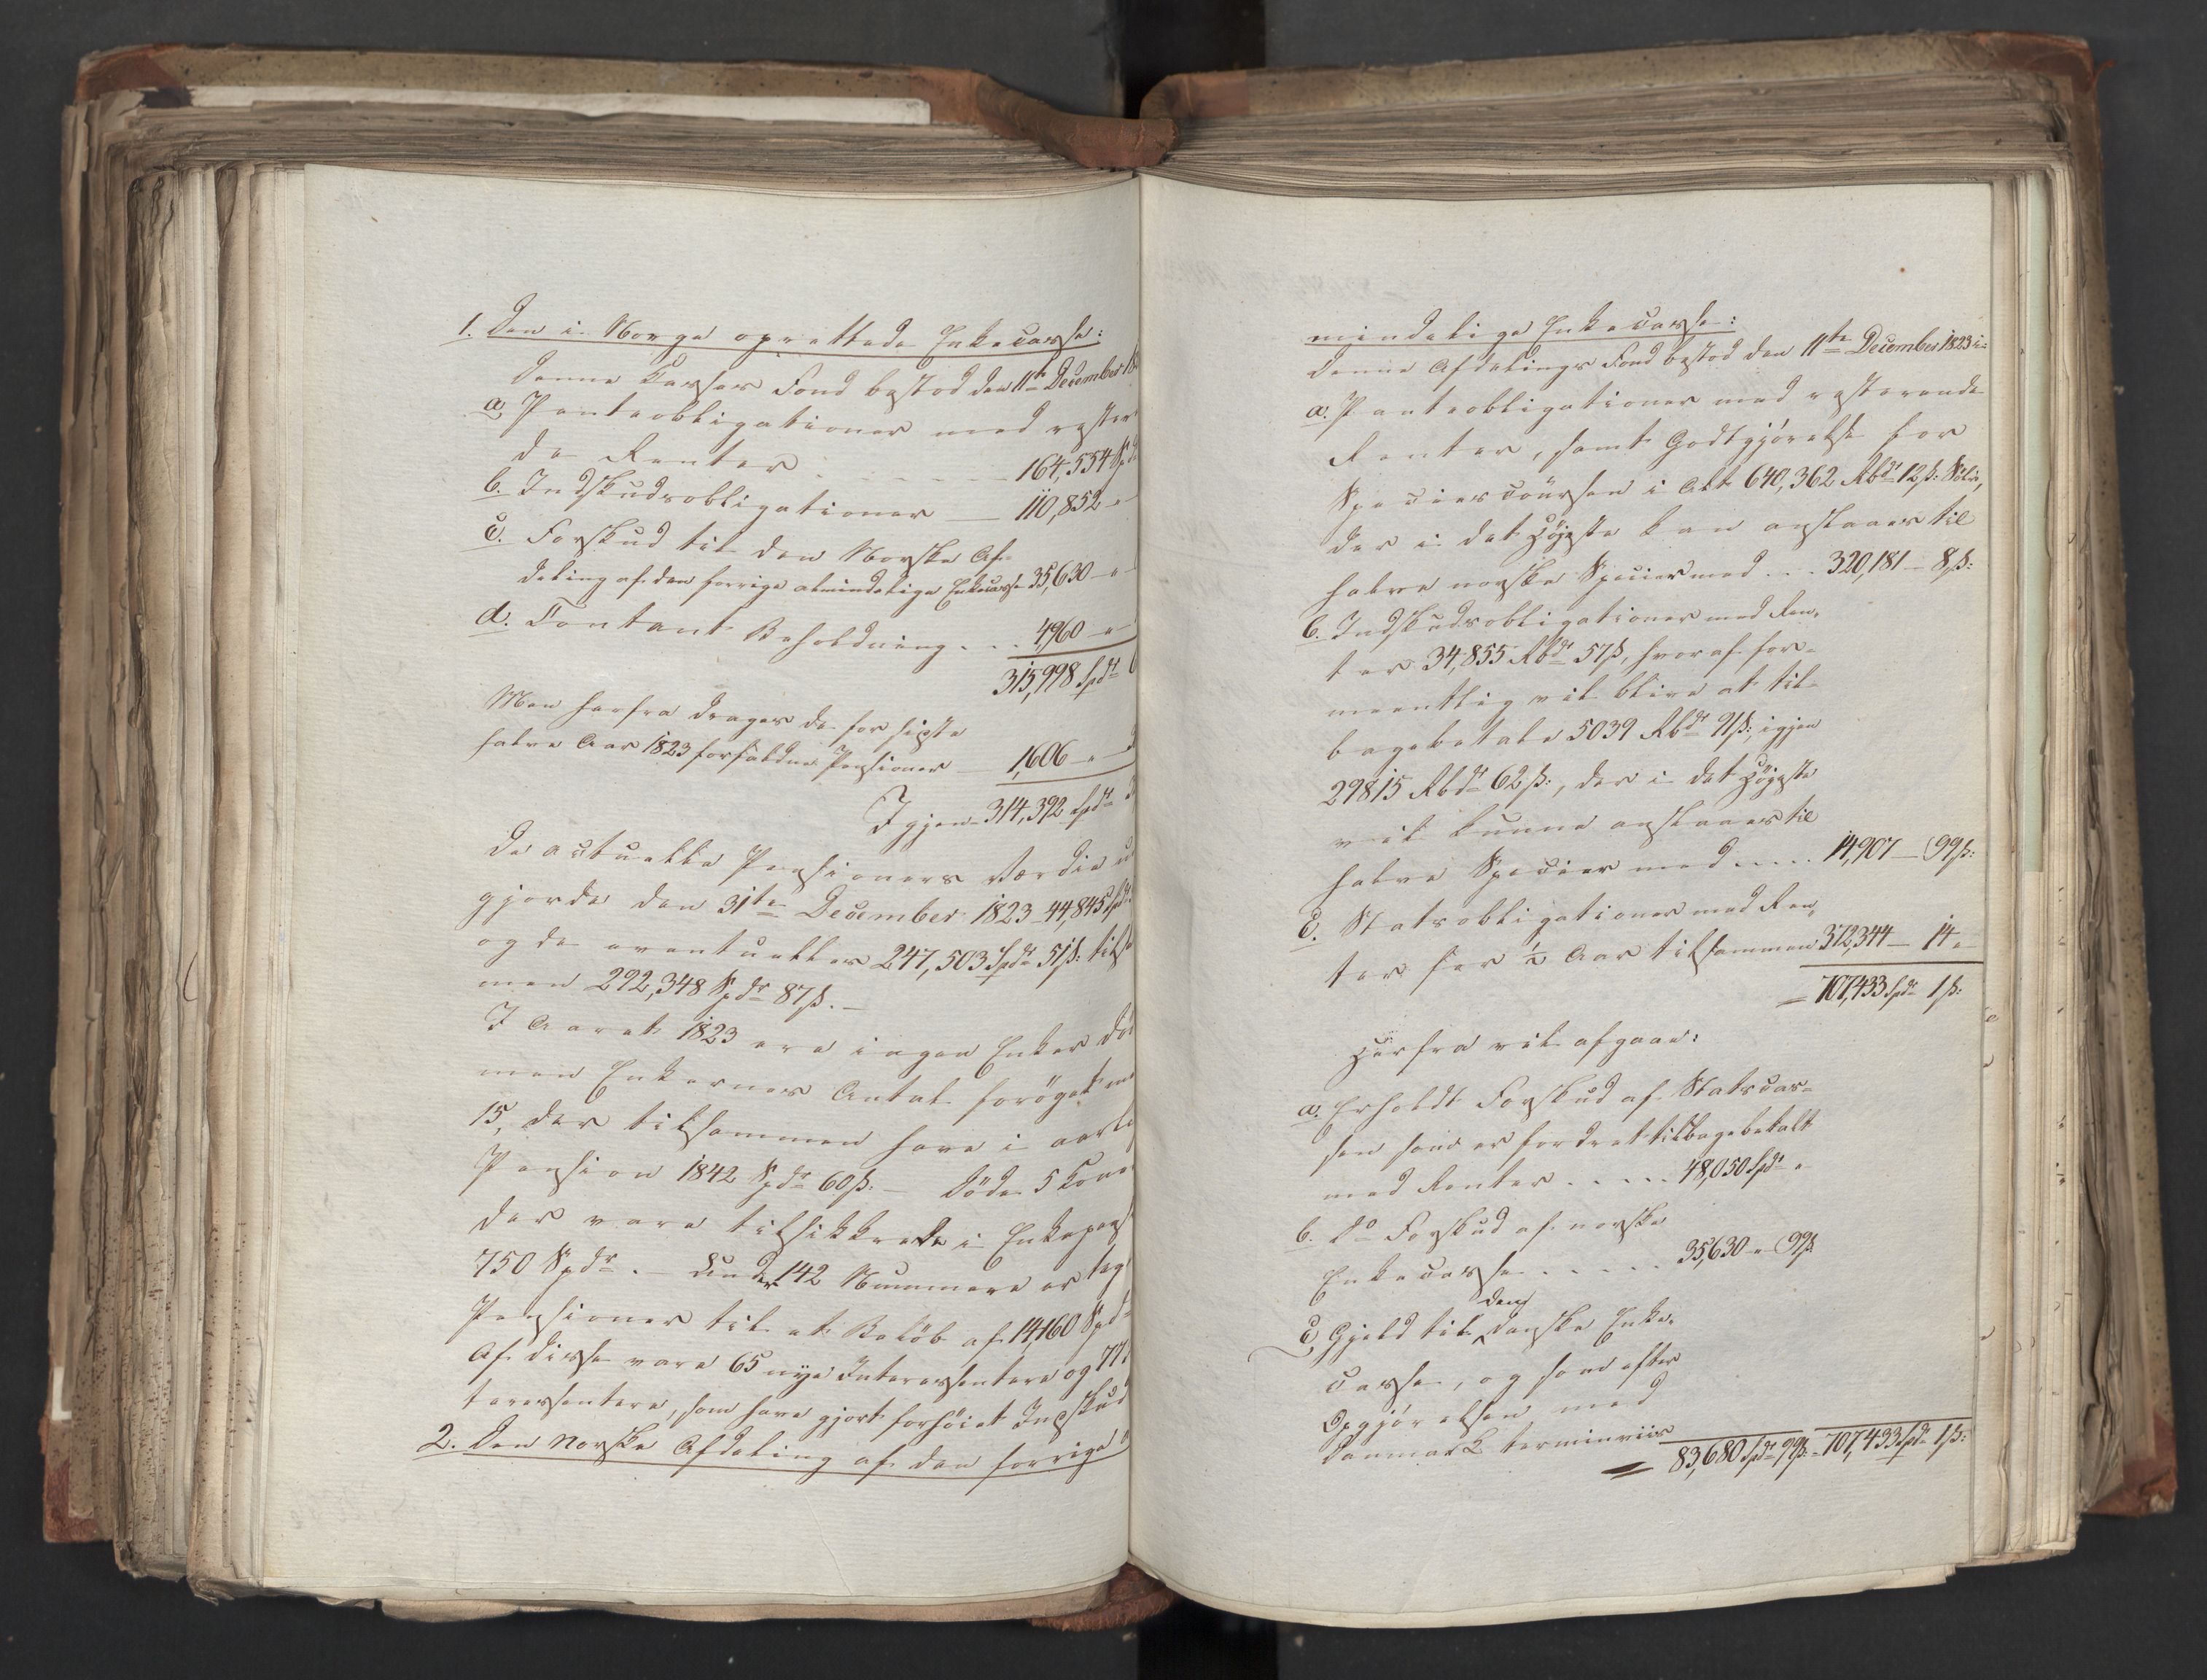 1. Den i Norge oprettede Enkecasse:
Denne Casses Fond bestod den 11te December 18
a, Panteobligationer med rester
de Renter . . . . . . 164,554 Spd
b. Indskudsobligationer — 110,852 "
c. Forskud til den Norske Af-
deling af den forrige almindelige Enkecasse 35,630 — "
d. Contant Beholdning . . . 4,960 — "
315,998 Spdr
Men herfra drages de for sidste
halve Aar 1823 forfaldne Pensioner — 1,606 — "
Igjen 314,392 Spdr
De actuelle Pensioners Værdie ud
gjorde den 31te December 1823 44,845 Spdr
og de eventuelles 247,503 Spdr 51 ß: tilsa
men 292,348 Spdr 87 ß. —
I Aaret 1823 ere ingen Enker dö
men Enkernes Antal foröget me
15, der tilsammen have i aarli
Pension 1842 Spdr 60 ß. — Döde 5 Kone
der vare tilsikkrede i Enkepens
750 Spdr. — Under 142 Nummere er teg
Pensioner til et Belöb af 14,160 Spdr
Af disse vare 65 nye Interessentere og 77
teressentere, som have gjort forhöiet Indskud
2. Den Norske Afdeling af den forrige
mindelige Enkecasse:
Denne Afdelings Fond bestod den 11te December 1823 i:
a. Panteobligationer med resterende
Renter, samt Godtgjörelse for
Speciescoursen i Alt 640,362 Rbdr 12 ß: Sölv,
der i det Höjeste kan anslaaes til
halve norske Species med . . . 320,181 — 8 ß:
b. Indskudsobligationer med Ren-
ter 34,855 Rbdr 57 ß, hvoraf for-
meentlig vil blive at til-
bagebetale 5039 Rbdr 91 ß; igjen
29815 Rbdr 62 ß:, der i det Höjeste
vil kunne anslaaes til
halve Species med . . . . 14,907 — 99 ß:
c. Statsobligationer med Ren-
ter for 1/2 Aar tilsammen 372,344 — 14 "
= 707,433 Spdr 1 ß:
Herfra vil afgaae:
a. Erholdt Forskud af Statscas-
sen som er fordret tilbagebetalt
med Renter . . . . . 48,050 Spdr "
b. Do Forskud af norske
Enkecasse . . . . . 35,630 " 99 ß
c, Gjeld til den danske Enke-
casse, og som efter
Opgjörelsen med
Danmark terminviis
= 83,680 Spdr 99 ß. = 707,433 Spdr 1 ß: